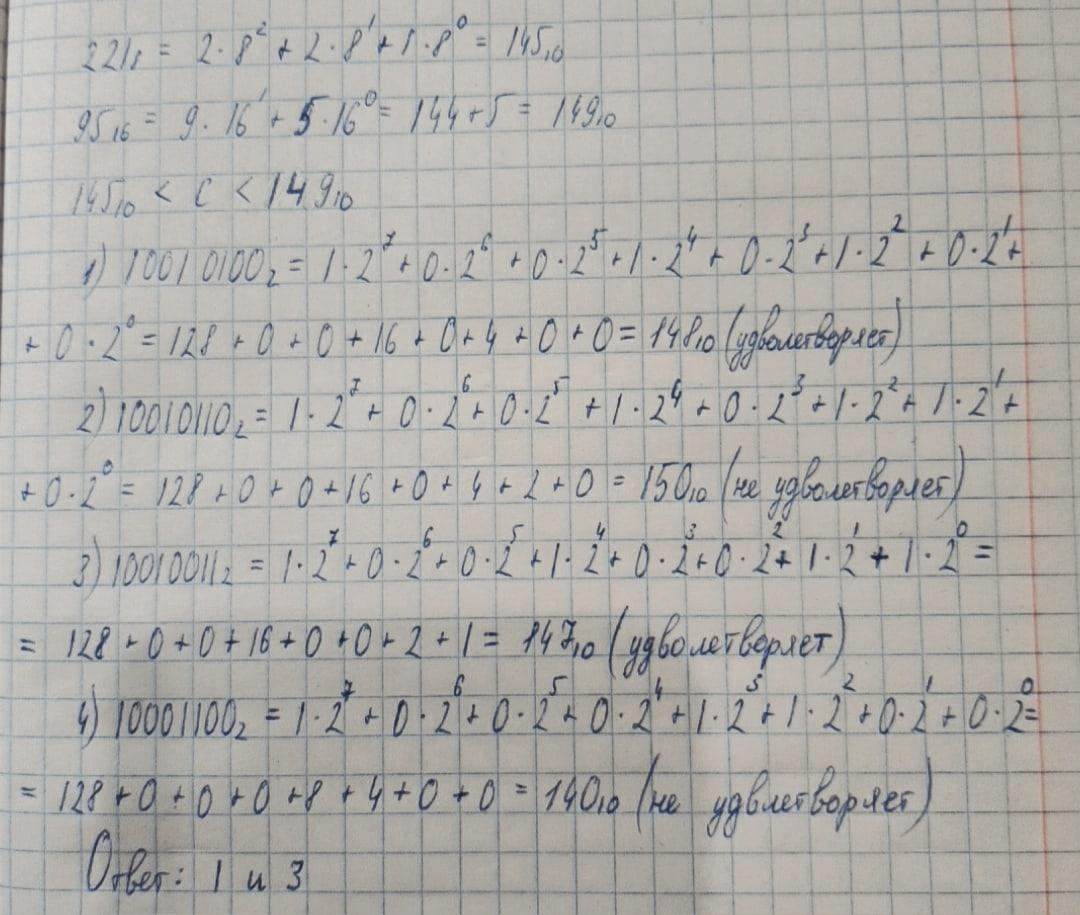 221₈ = 2·8² + 2·8¹ + 1·8⁰ = 145₁₀
95₁₆ = 9·16¹ + 5·16⁰ = 144+5 = 149₁₀
145₁₀ < C < 149₁₀
1) 10010100₂ = 1·2⁷ + 0·2⁶ + 0·2⁵ + 1·2⁴ + 0·2³ + 1·2² + 0·2¹ +
+ 0·2⁰ = 128 + 0 + 0 + 16 + 0 + 4 + 0 + 0 = 148₁₀ (удволетворяет)
2) 10010110₂ = 1·2⁷ + 0·2⁶ + 0·2⁵ + 1·2⁴ + 0·2³ + 1·2² + 1·2¹ +
+ 0·2⁰ = 128 + 0 + 0 + 16 + 0 + 4 + 2 + 0 = 150₁₀ (не удволетворяет)
3) 10010011₂ = 1·2⁷ + 0·2⁶ + 0·2⁵ + 1·2⁴ + 0·2³ + 0·2² + 1·2¹ + 1·2⁰ =
= 128 + 0 + 0 + 16 + 0 + 0 + 2 + 1 = 147₁₀ (удволетворяет)
4) 10001100₂ = 1·2⁷ + 0·2⁶ + 0·2⁵ + 0·2⁴ + 1·2³ + 1·2² + 0·2¹ + 0·2⁰ =
= 128 + 0 + 0 + 0 + 8 + 4 + 0 + 0 = 140₁₀ (не удвлетворяет)
Ответ: 1 и 3